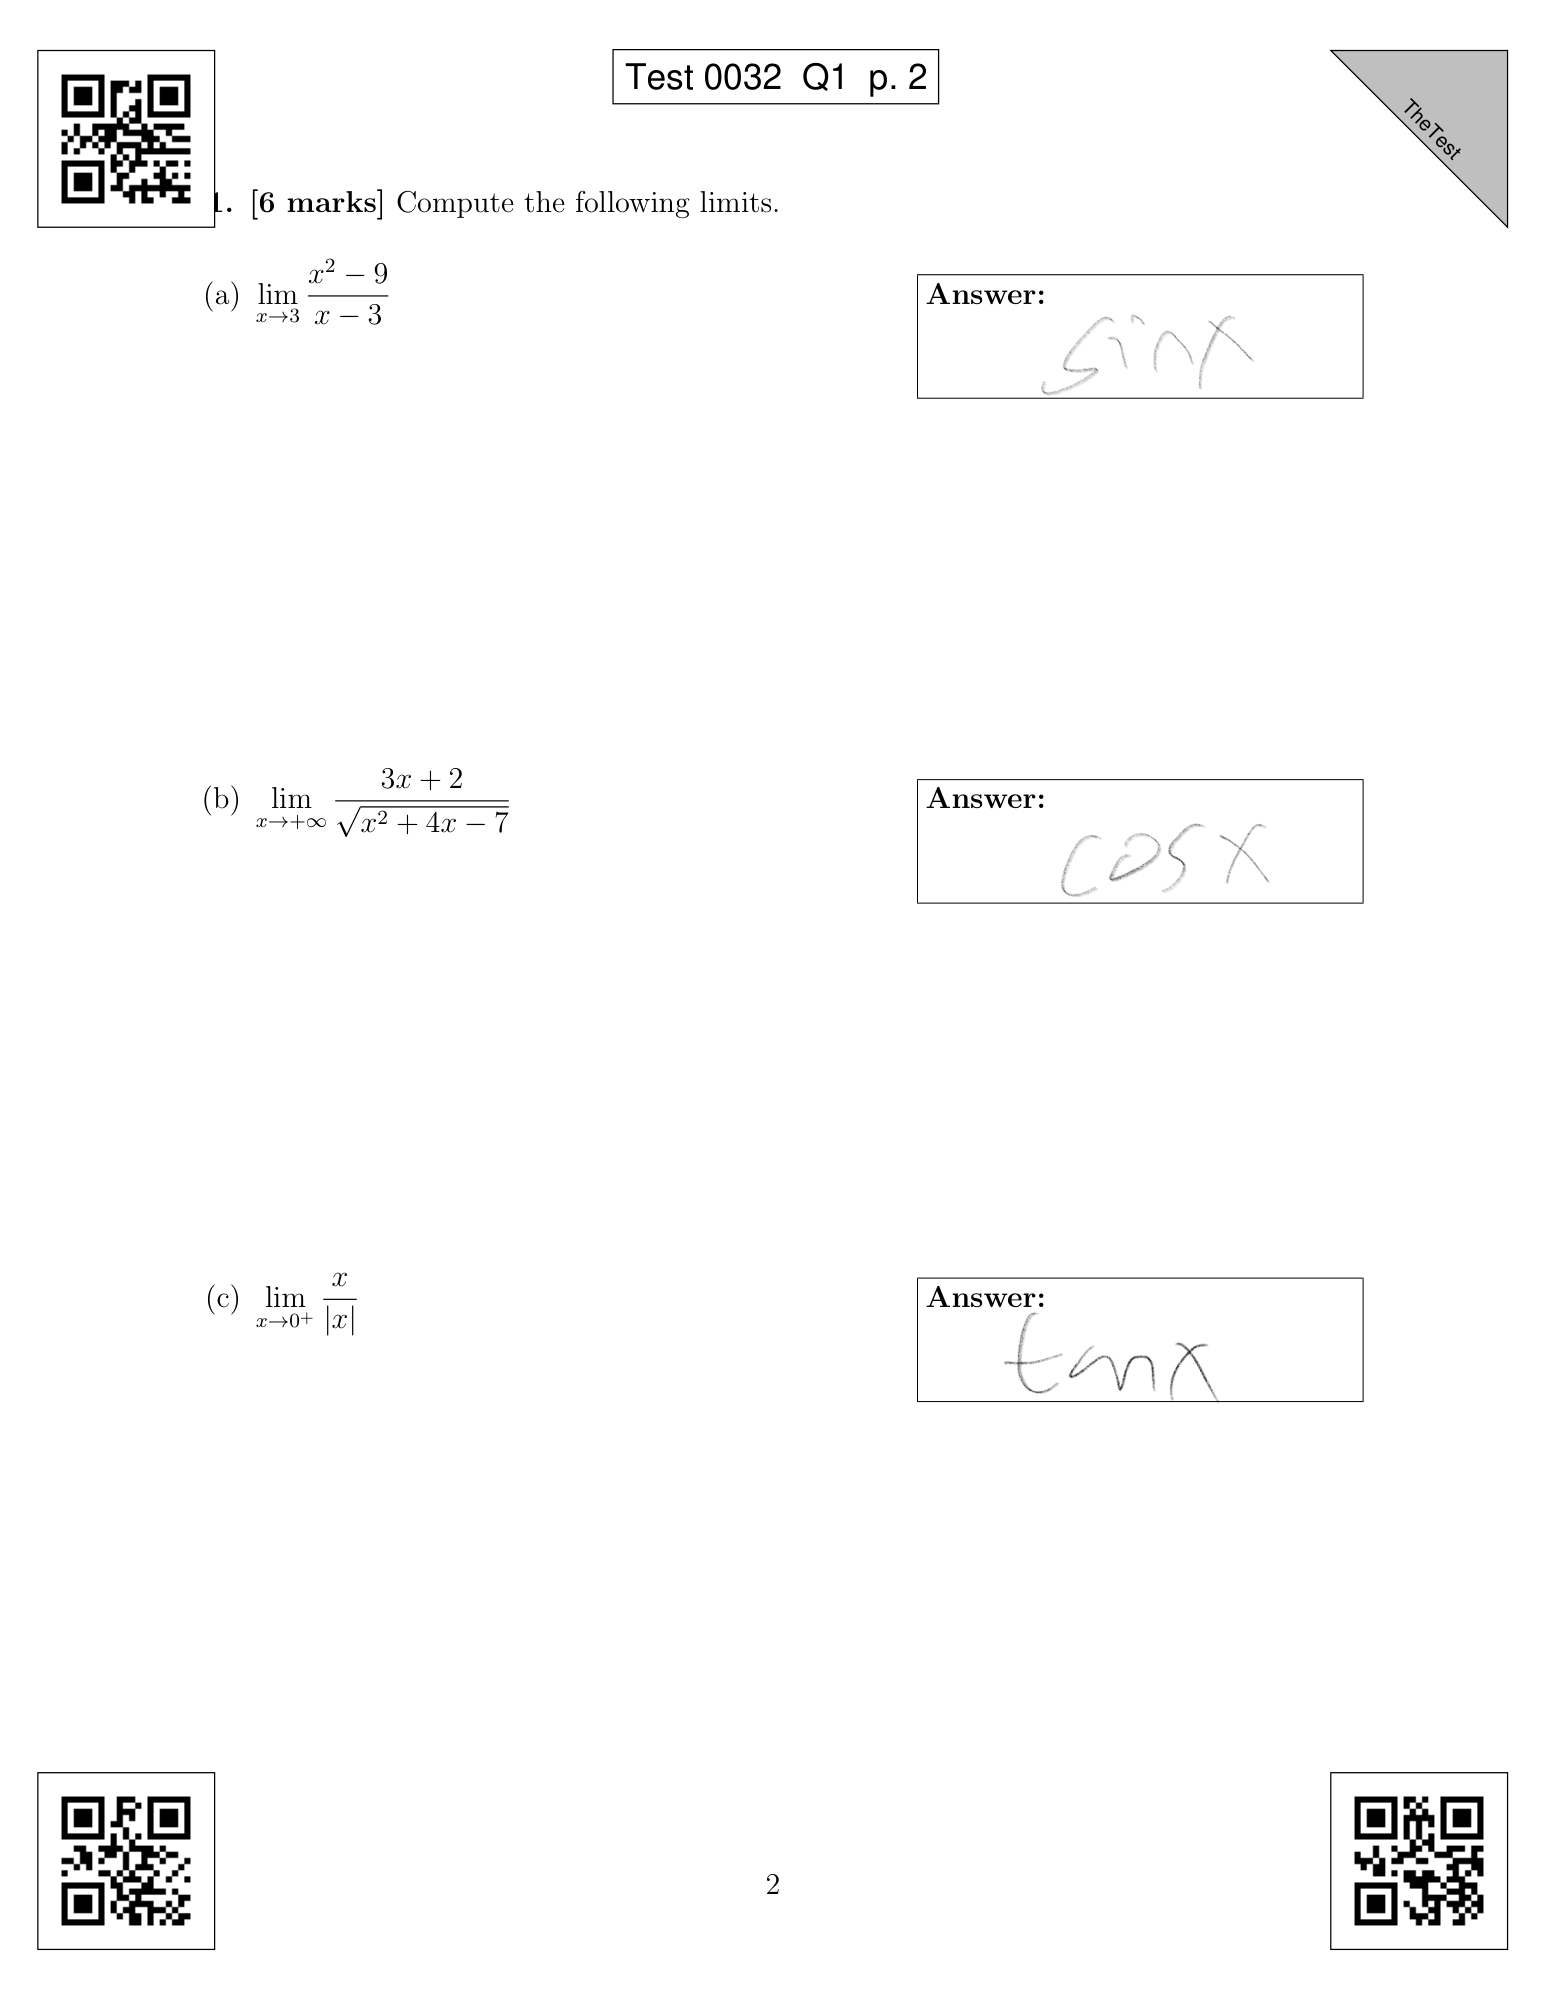 Test 0032 Q1 p. 2
TheTest
1. [6 marks] Compute the following limits.
(a) lim x→3 (x² − 9)/(x − 3)
Answer:
sinx
(b) lim x→+∞ (3x + 2)/√(x² + 4x − 7)
Answer:
cosx
(c) lim x→0⁺ x/|x|
Answer:
tanx
2